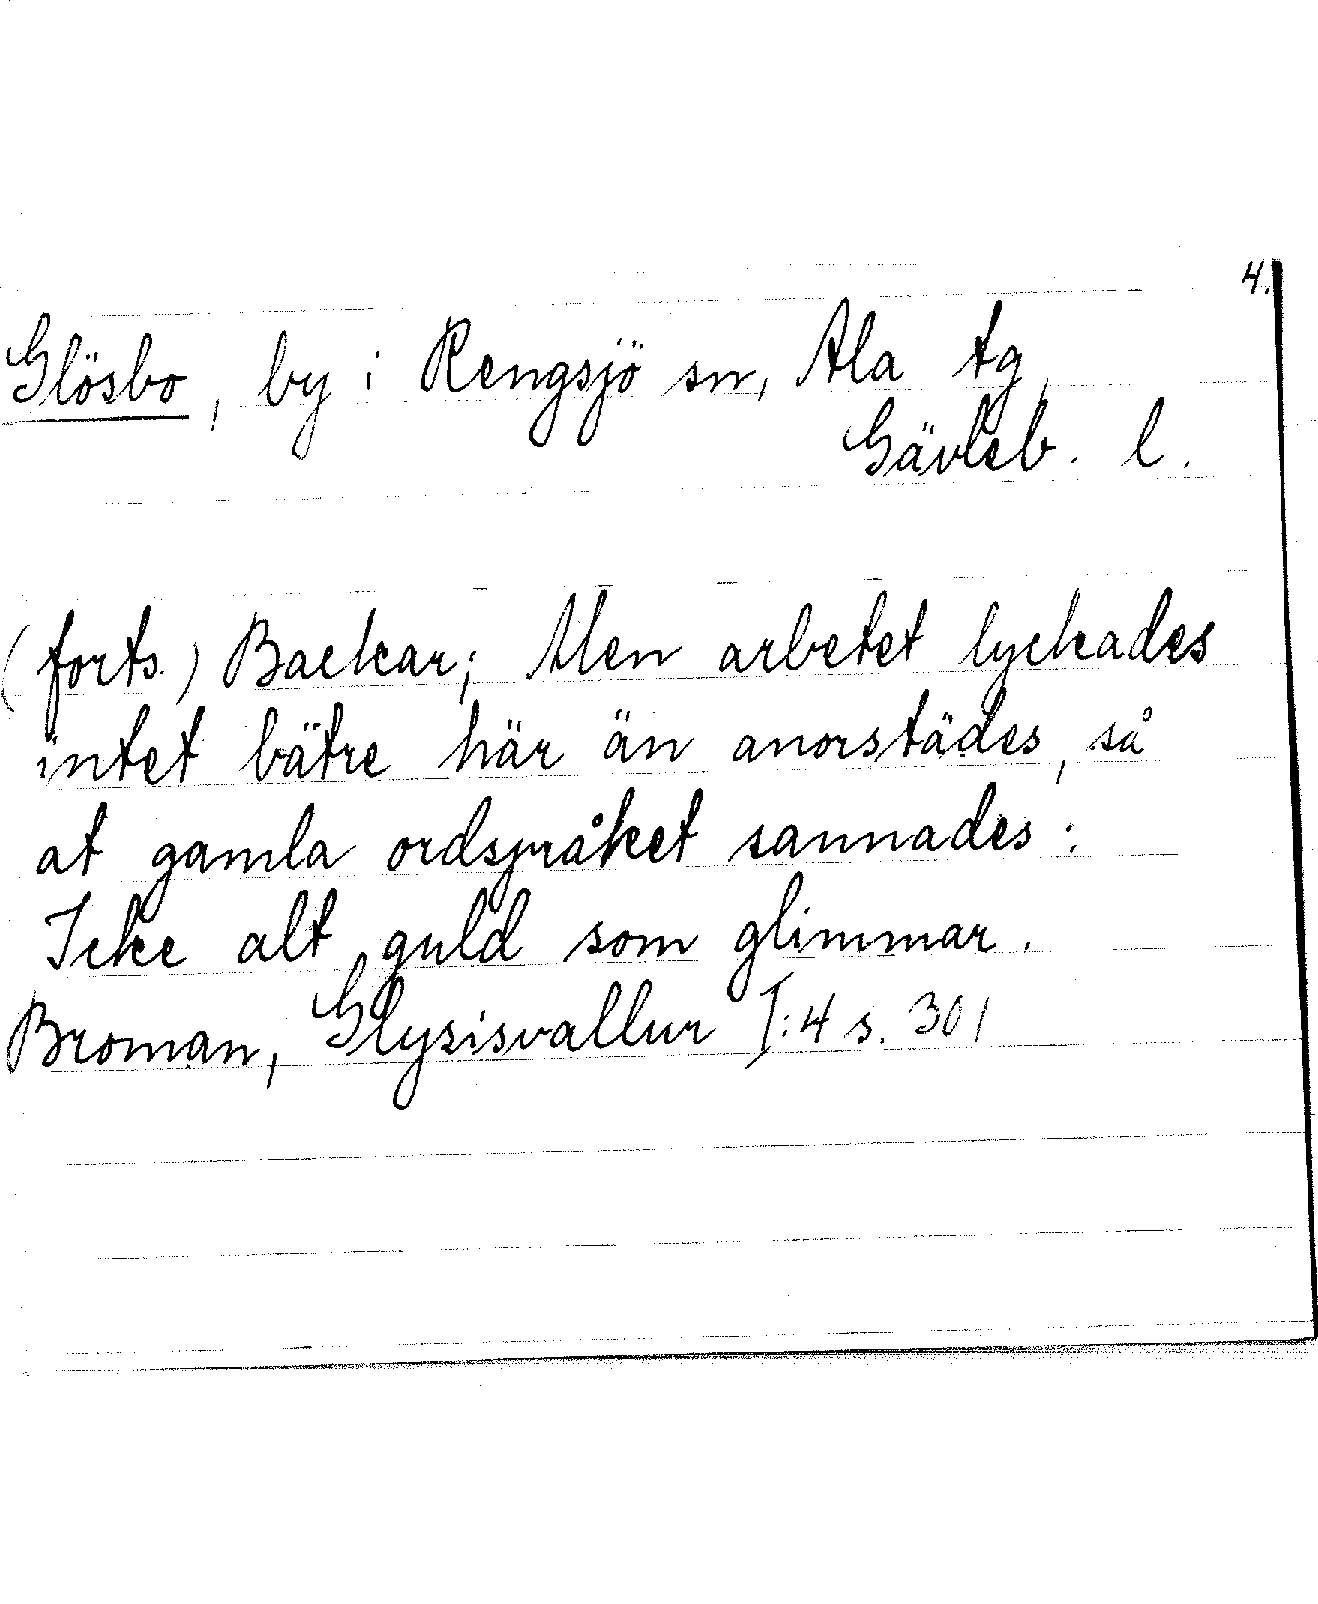 4.
Glösbo, by i Rengsjö sn, Ala tg,
Gävleb. l.
(forts.) Backar; Men arbetet lyckades
intet bätre här än anorstädes, så
at gamla ordspråket sannades:
Icke alt guld som glimmar.
Broman, Glysisvallur I:4 s. 301